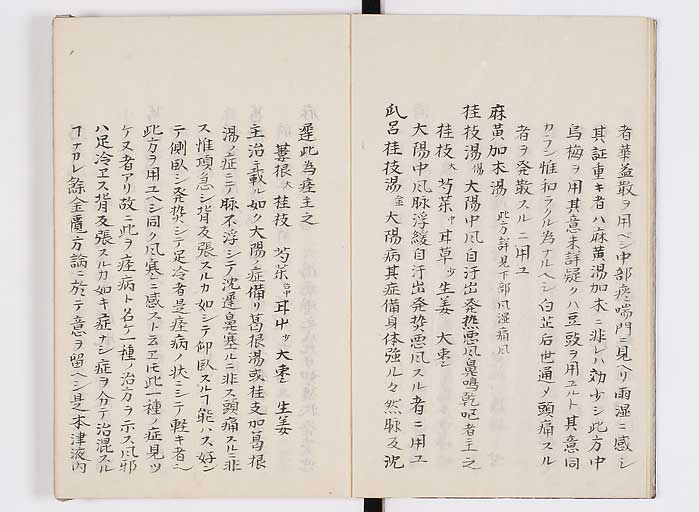 者華盖散ヲ用ベシ中部痰喘門ニ見ヘリ雨湿ニ感シ
其証重キ者ハ麻黄湯加朮ニ非レハ効少シ此方中
烏梅ヲ用其意未詳疑クハ豆豉ヲ用ユルト其意同
カラン惟和ラクル為ナルヘシ白芷后世通メ頭痛スル
者ヲ発散スルニ用ユ
麻黄加朮湯 此方詳見下部風湿痛風
桂枝湯 傷 大陽中風自汗出発熱悪風鼻鳴乾嘔者主之
桂枝 大 芍薬 中 甘草 少 生姜 大棗
大陽中風脉浮緩自汗出発熱悪風スル者ニ用ユ
瓜呂桂枝湯 金 大陽病其症備身体強ル々然脉反沈
遅此為痓主之
蔞根 大 桂枝 芍薬 各中 甘草 少 大棗 生姜
主治ニ載ル如ク大陽ノ症備リ葛根湯或桂支加葛根
湯ノ症ニテ脉不浮シテ沈遅鼻塞ルニ非ス頭痛スルニ非
ス惟項急シ背反張スルカ如シテ仰臥スルヿ能ハス好ン
テ側臥シ発熱シテ足冷者是痓病ノ状ニシテ軽キ者ニ
此方ヲ用ユヘシ同ク風寒ニ感ストイヱ𪜈此一種ノ症見ツ
ケヌ者アリ故ニ此ヲ痓病ト名ケ一種ノ治方ヲ示ス風邪
ハ足冷ヱス背反張スルカ如キ症ナシ症ヲ分テ治混スル
ヿナカレ餘金匱方論ニ於テ意ヲ留ヘシ是本津液内